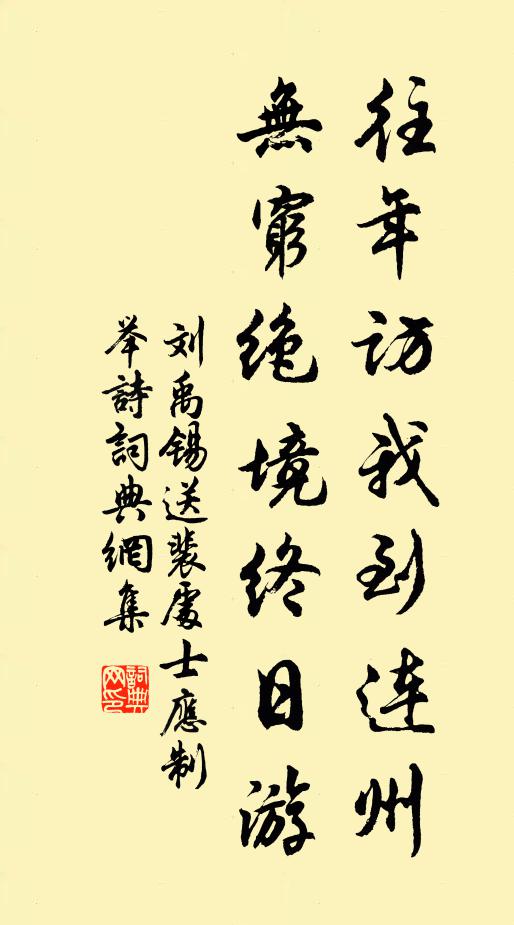 往年访我到连州
無窮绝境终日游
刘禹锡送裴處士應制
举詩詞典網集
詞典
网印